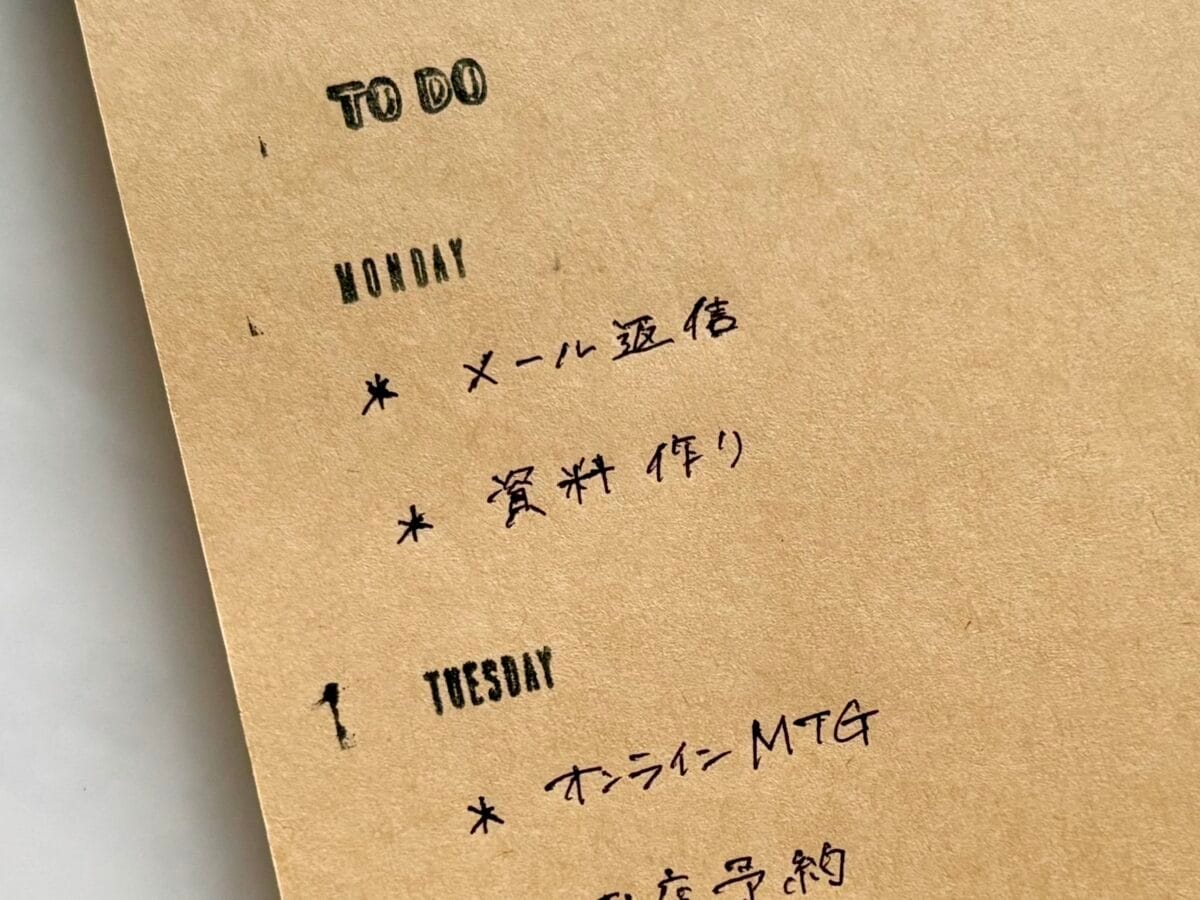 TO DO
MONDAY
* メール返信
* 資料作り
TUESDAY
* オンラインMTG
店予約